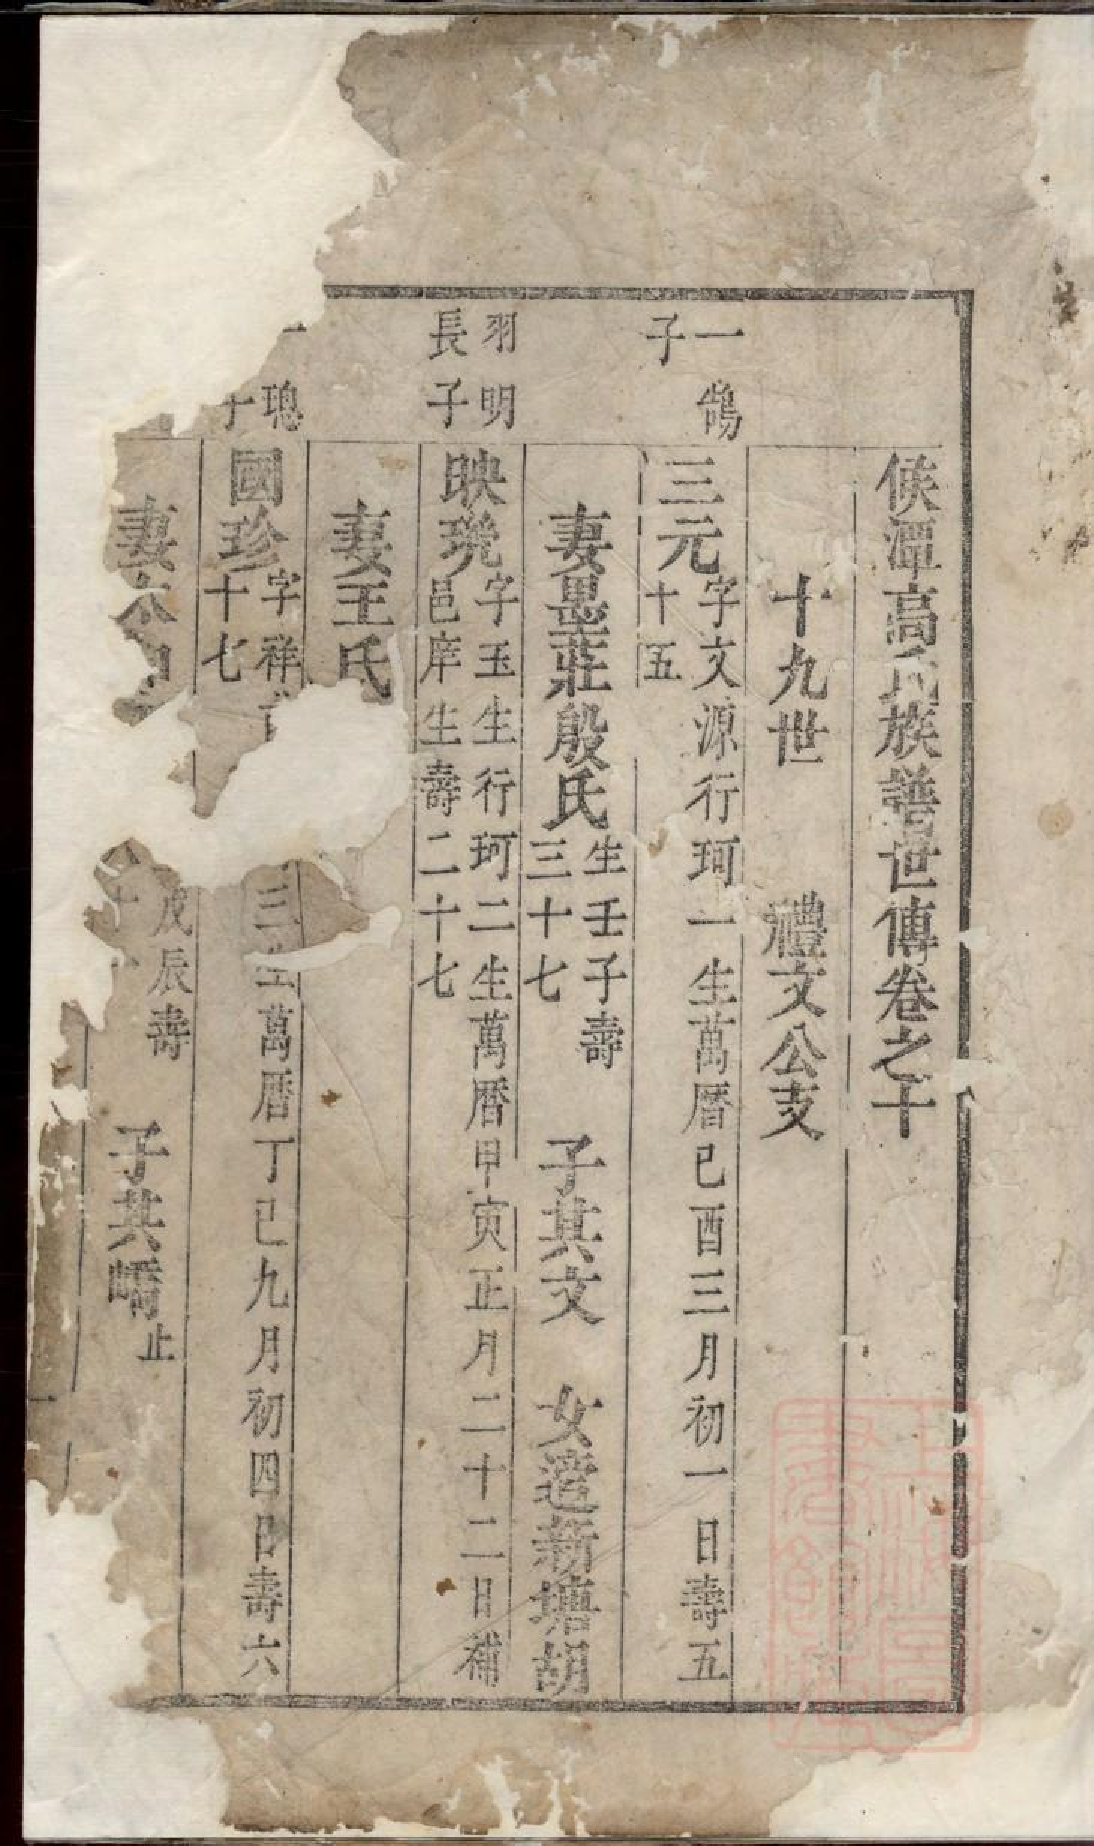 候潭高氏族譜世傳卷之十
十九世　禮文公支
一鵠
子
三元
字文源行珂一生萬曆己酉三月初一日壽五
十五
妻墨莊殷氏
生壬子壽
三十七
子其文　女適新塘胡
羽明
長子
映璣
字玉生行珂二生萬曆甲寅正月二十二日補
邑庠生壽二十七
妻王氏
一璁
子
國珍
字祥
三生萬曆丁巳九月初四日壽六
十七
妻
戊辰壽
子其嶠止